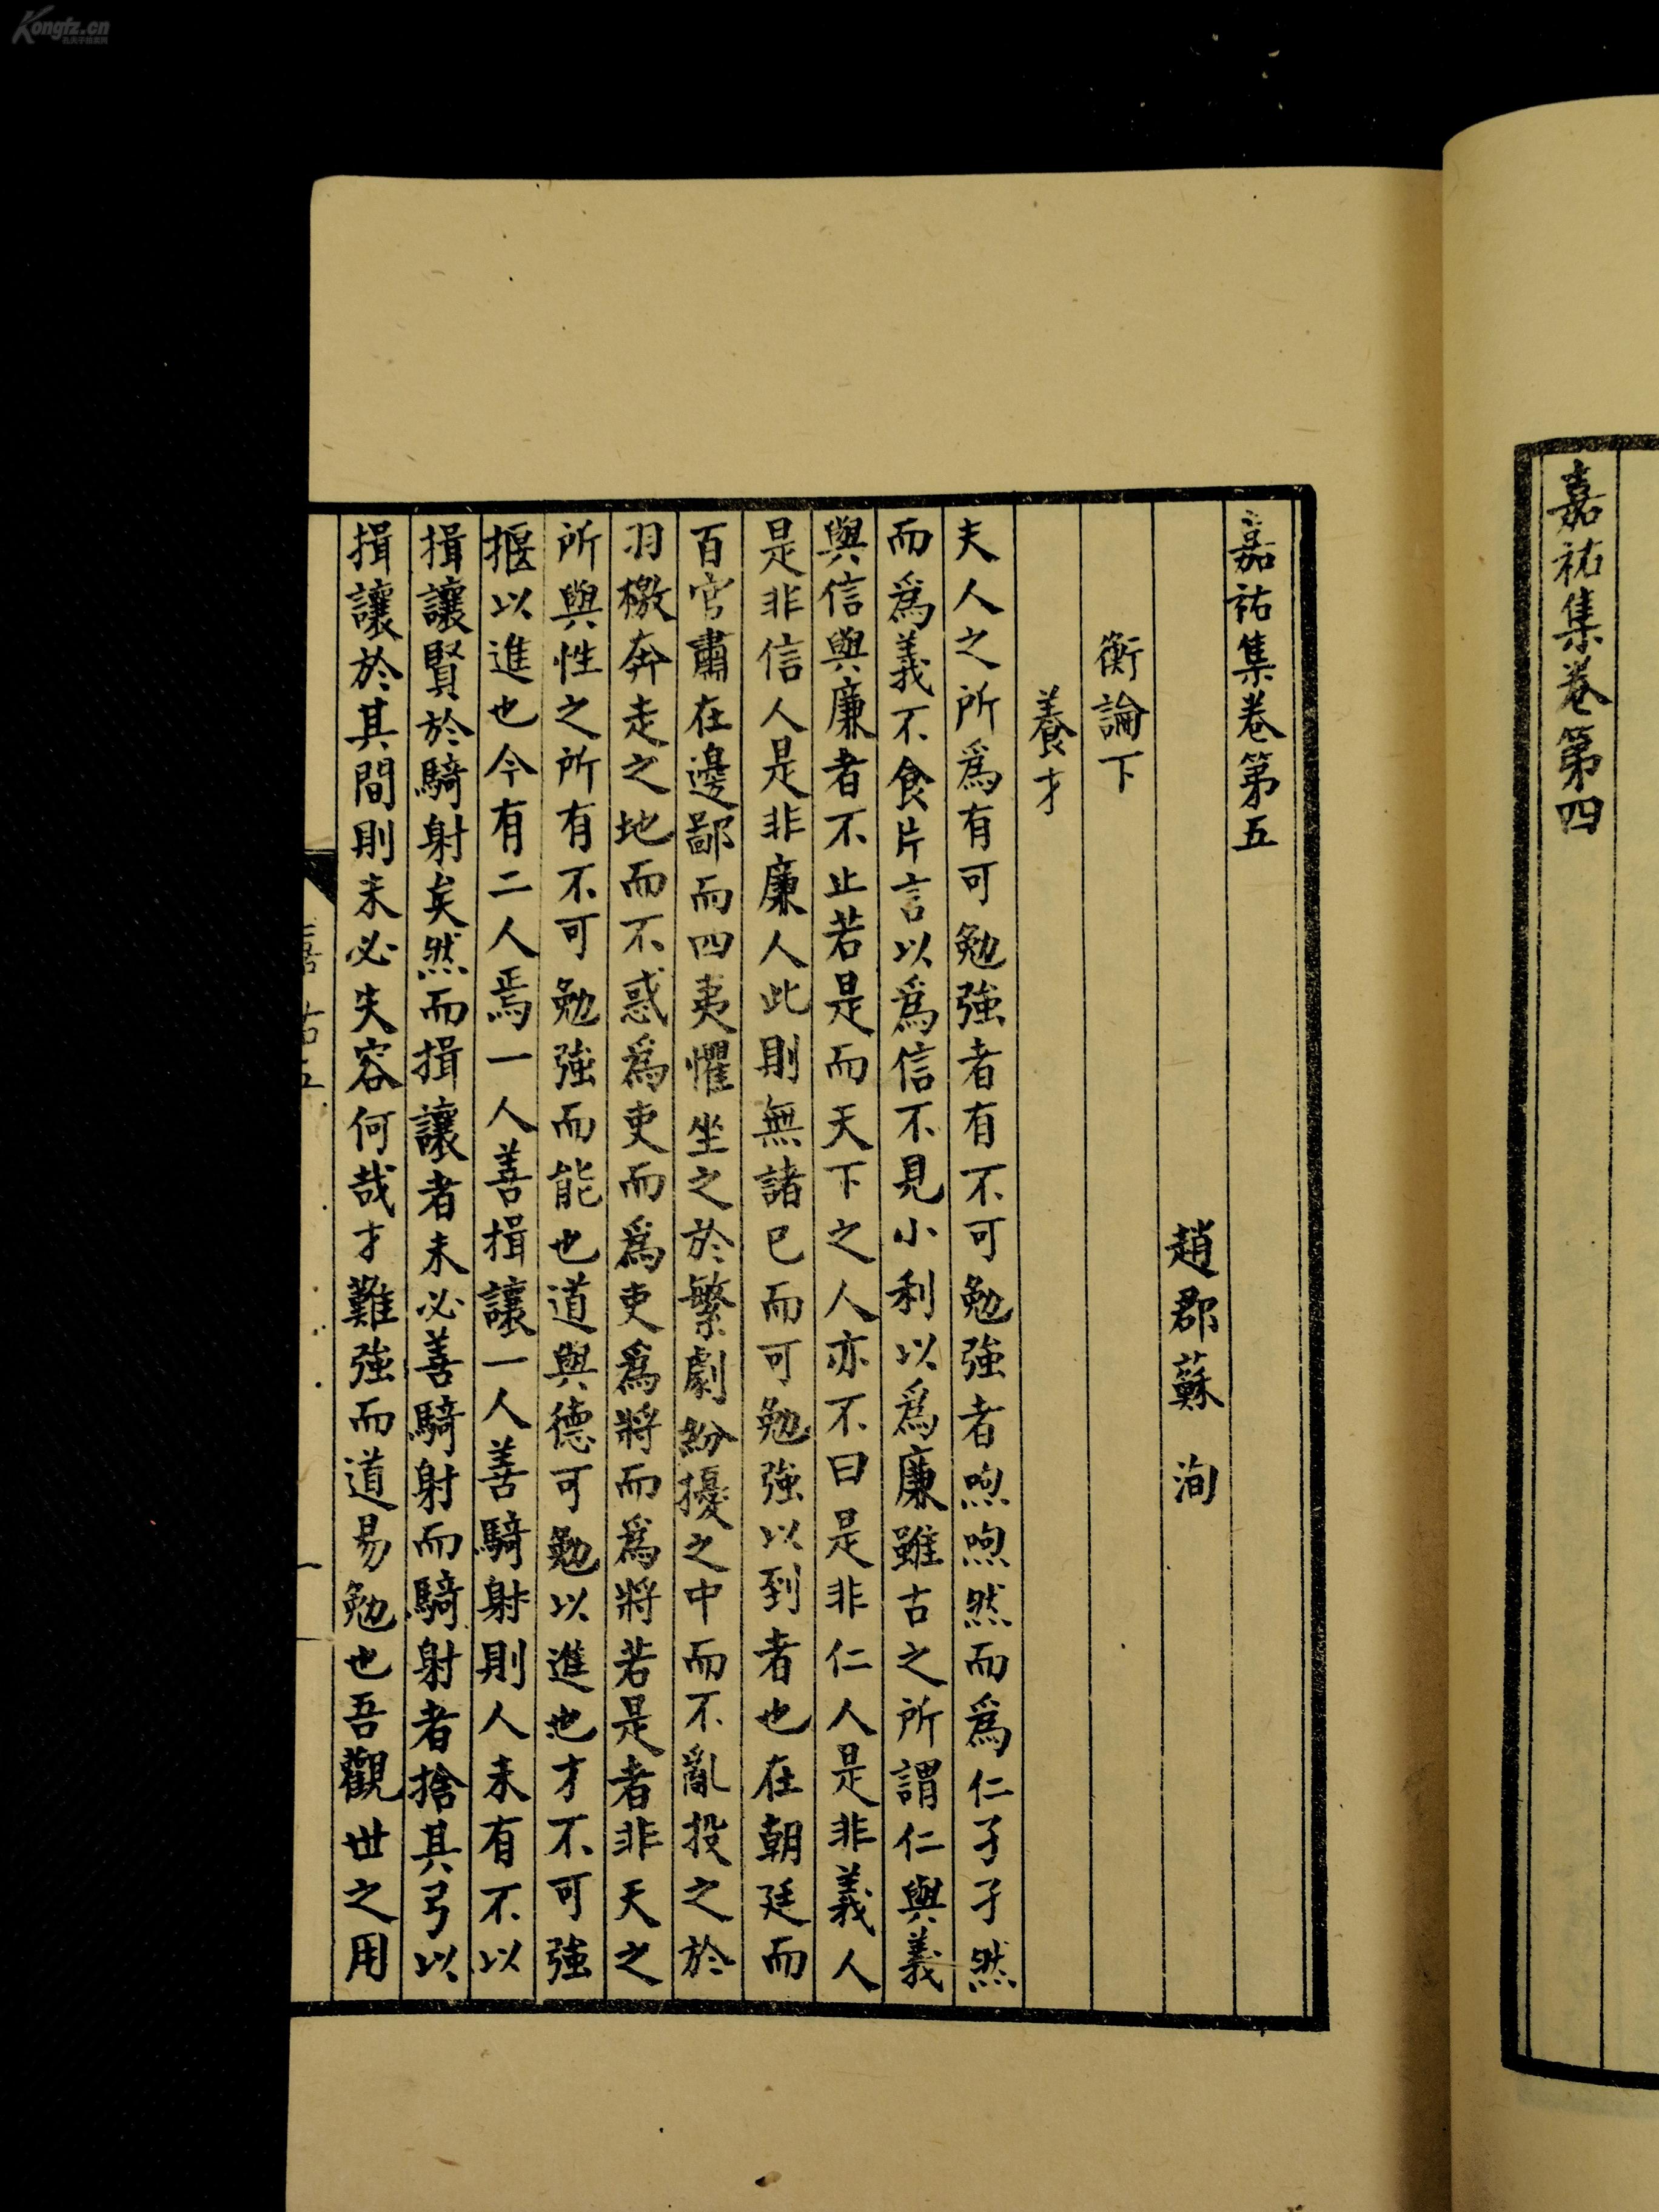 嘉祐集卷第四
嘉祐集卷第五
趙郡蘇洵
衡論下
養才
夫人之所爲有可勉強者有不可勉強者喣喣然而爲仁孑孑然
而爲義不食片言以爲信不見小利以爲廉雖古之所謂仁與義
與信與廉者不止若是而天下之人亦不曰是非仁人是非義人
是非信人是非廉人此則無諸已而可勉強以到者也在朝廷而
百官肅在邊鄙而四夷懼坐之於繁劇紛擾之中而不亂投之於
羽檄奔走之地而不惑爲吏而爲吏爲將而爲將若是者非天之
所與性之所有不可勉強而能也道與德可勉以進也才不可強
揠以進也今有二人焉一人善揖讓一人善騎射則人未有不以
揖讓賢於騎射矣然而揖讓者未必善騎射而騎射者捨其弓以
揖讓於其間則未必失容何哉才難強而道易勉也吾觀世之用
Kongfz.cn